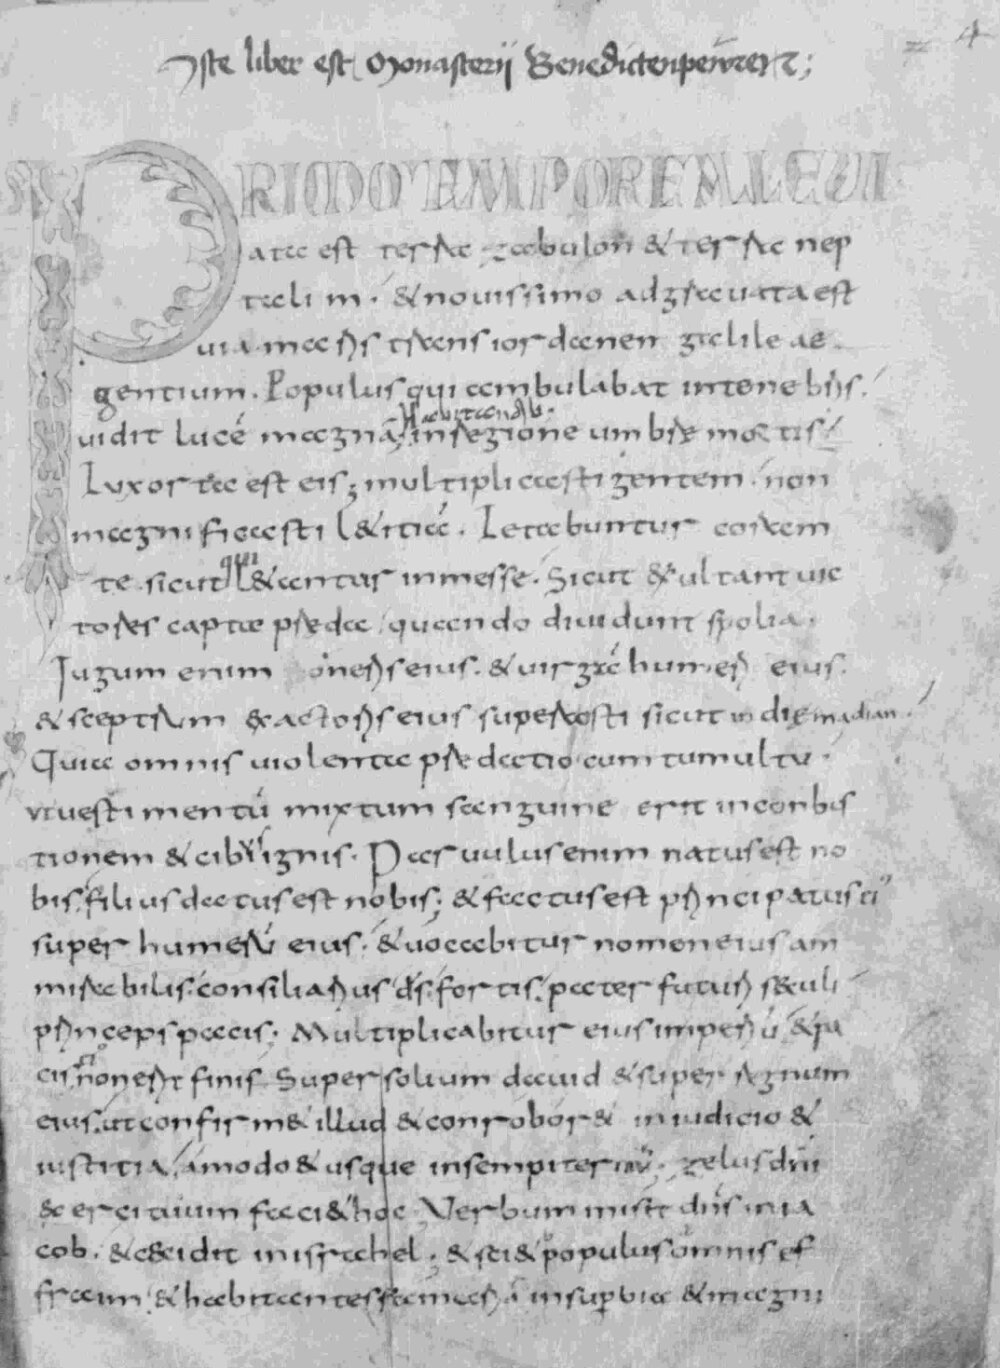 4
Iste liber est Monasterii Benedictenpewren etc;
PRIMO TEMPORE ALLEVI
ata est terra zabulon & terra nep
tali m. & novissimo adgravata est
via maris trans iordanen galileae
gentium. Populus qui ambulabat in tenebris.
vidit lucē magnā; habitantib. in regione umbrae mortis
Lux orta est eis; multiplicasti gentem. non
magnificasti l&itiā. Laetabuntur coram
te sicut qui l&antur in messe. Sicut exultant vic
tores capta praeda quando dividunt spolia.
Iugum enim oneris eius. & virgā humeri eius.
& sceptrum exactoris eius superasti sicut in die madian.
Quia omnis violenta praedatio cum tumultu.
& vestimentū mixtum sanguine erit in conbus
tionem & cibus ignis. Parvulus enim natus est no
bis. filius datus est nobis; & factus est principatus ei'
super humerū eius. & vocabitur nomen eius am
mirabilis. consiliarius. d̄s. fortis. pater futuri s&culi
princeps pacis; Multiplicabitur eius imperiū & pa
cis non erit finis. Super solium david & super regnum
eius. ut confirm& illud & conrobor& in iudicio &
iustitia, amodo & usque in sempiternū. zelus dn̄i
exercituum faci& hoc. Verbum misit dn̄s in ia
cob. & cecidit in israhel. & sci& populus omnis ef
fraim. & habitantes samariā in superbia & magni